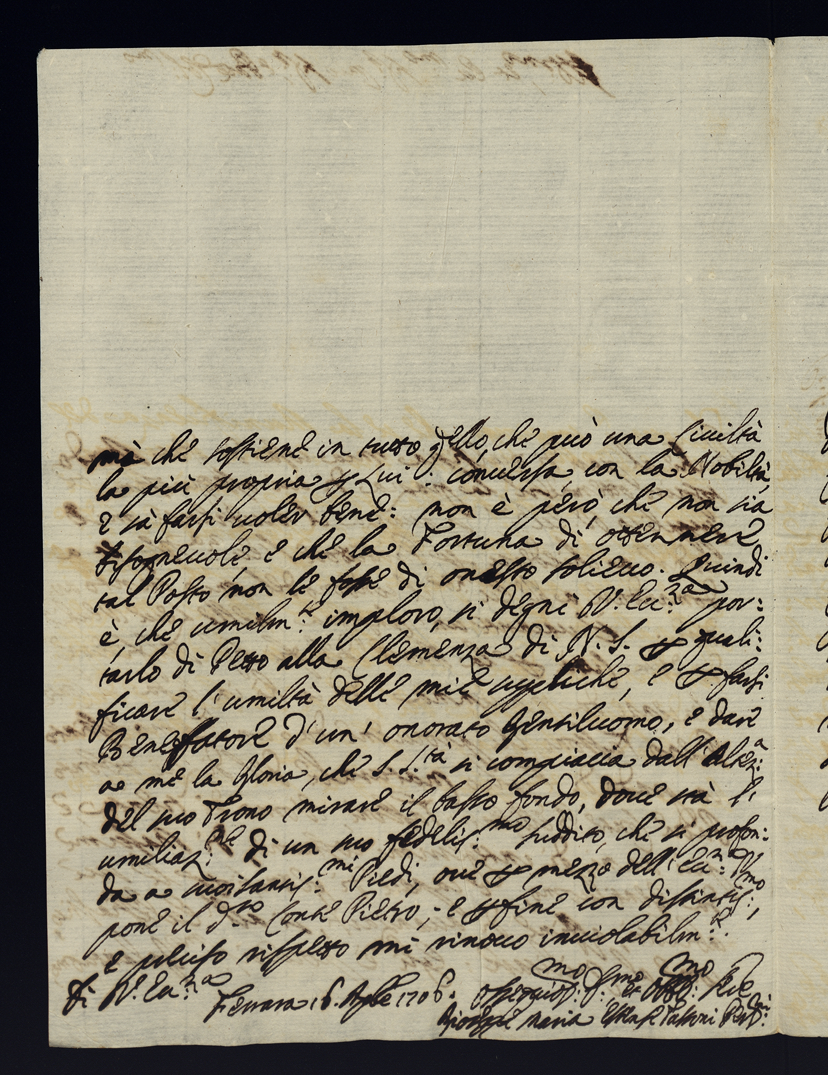 mà che sostiene in tutto q.ello, che può una Civiltà
la più propria p Lui: conversa, con la Nobiltà,
e sà farsi voler bene: non è però, che non sia
bisognevole, e che la Fortuna di ottennere
tal Posto non le fosse di onesto solievo. Quindi
è, che umilm.te imploro, si degni V. Ecc.za por:
tarlo di Petto alla Clemenza di N. S. p quali:
ficare l'umiltà delle mie suppliche, e p farsi
Benefatore d'un' onorato Gentiluomo, e dare
a me la Gloria, che S. S.tà si compiacia dall' Altez.a
del suo Trono mirare il basso fondo, dove stà l'
umiliaz.ne di un suo fedelis.mo suddito, che si profon:
da a suoi santis.mi Piedi, ove p mezzo dell' Ecc.za V.
pone il d.to Conte Pietro; e p fine con distintis.mo,
e preciso rispetto mi rinovo inviolabilm.te
Di V. Ecc.za
Ferrara 16 Aple 1706. Ossequios.mo D.mo et Obb.mo Ser.e
Gioseppe Maria Estense Tassoni